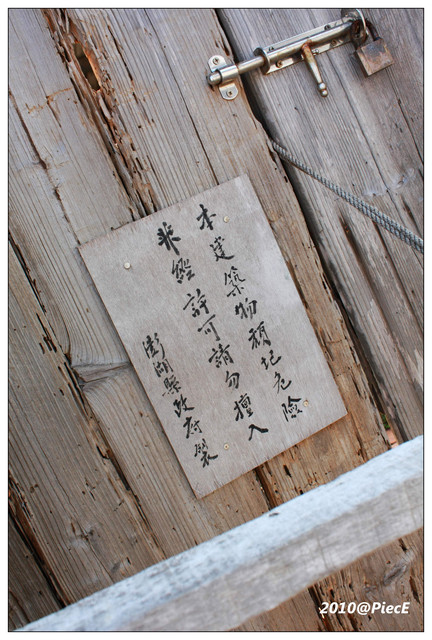 本建築物頹圮危險
非經許可請勿擅入
澎湖縣政府製
2010@PiecE